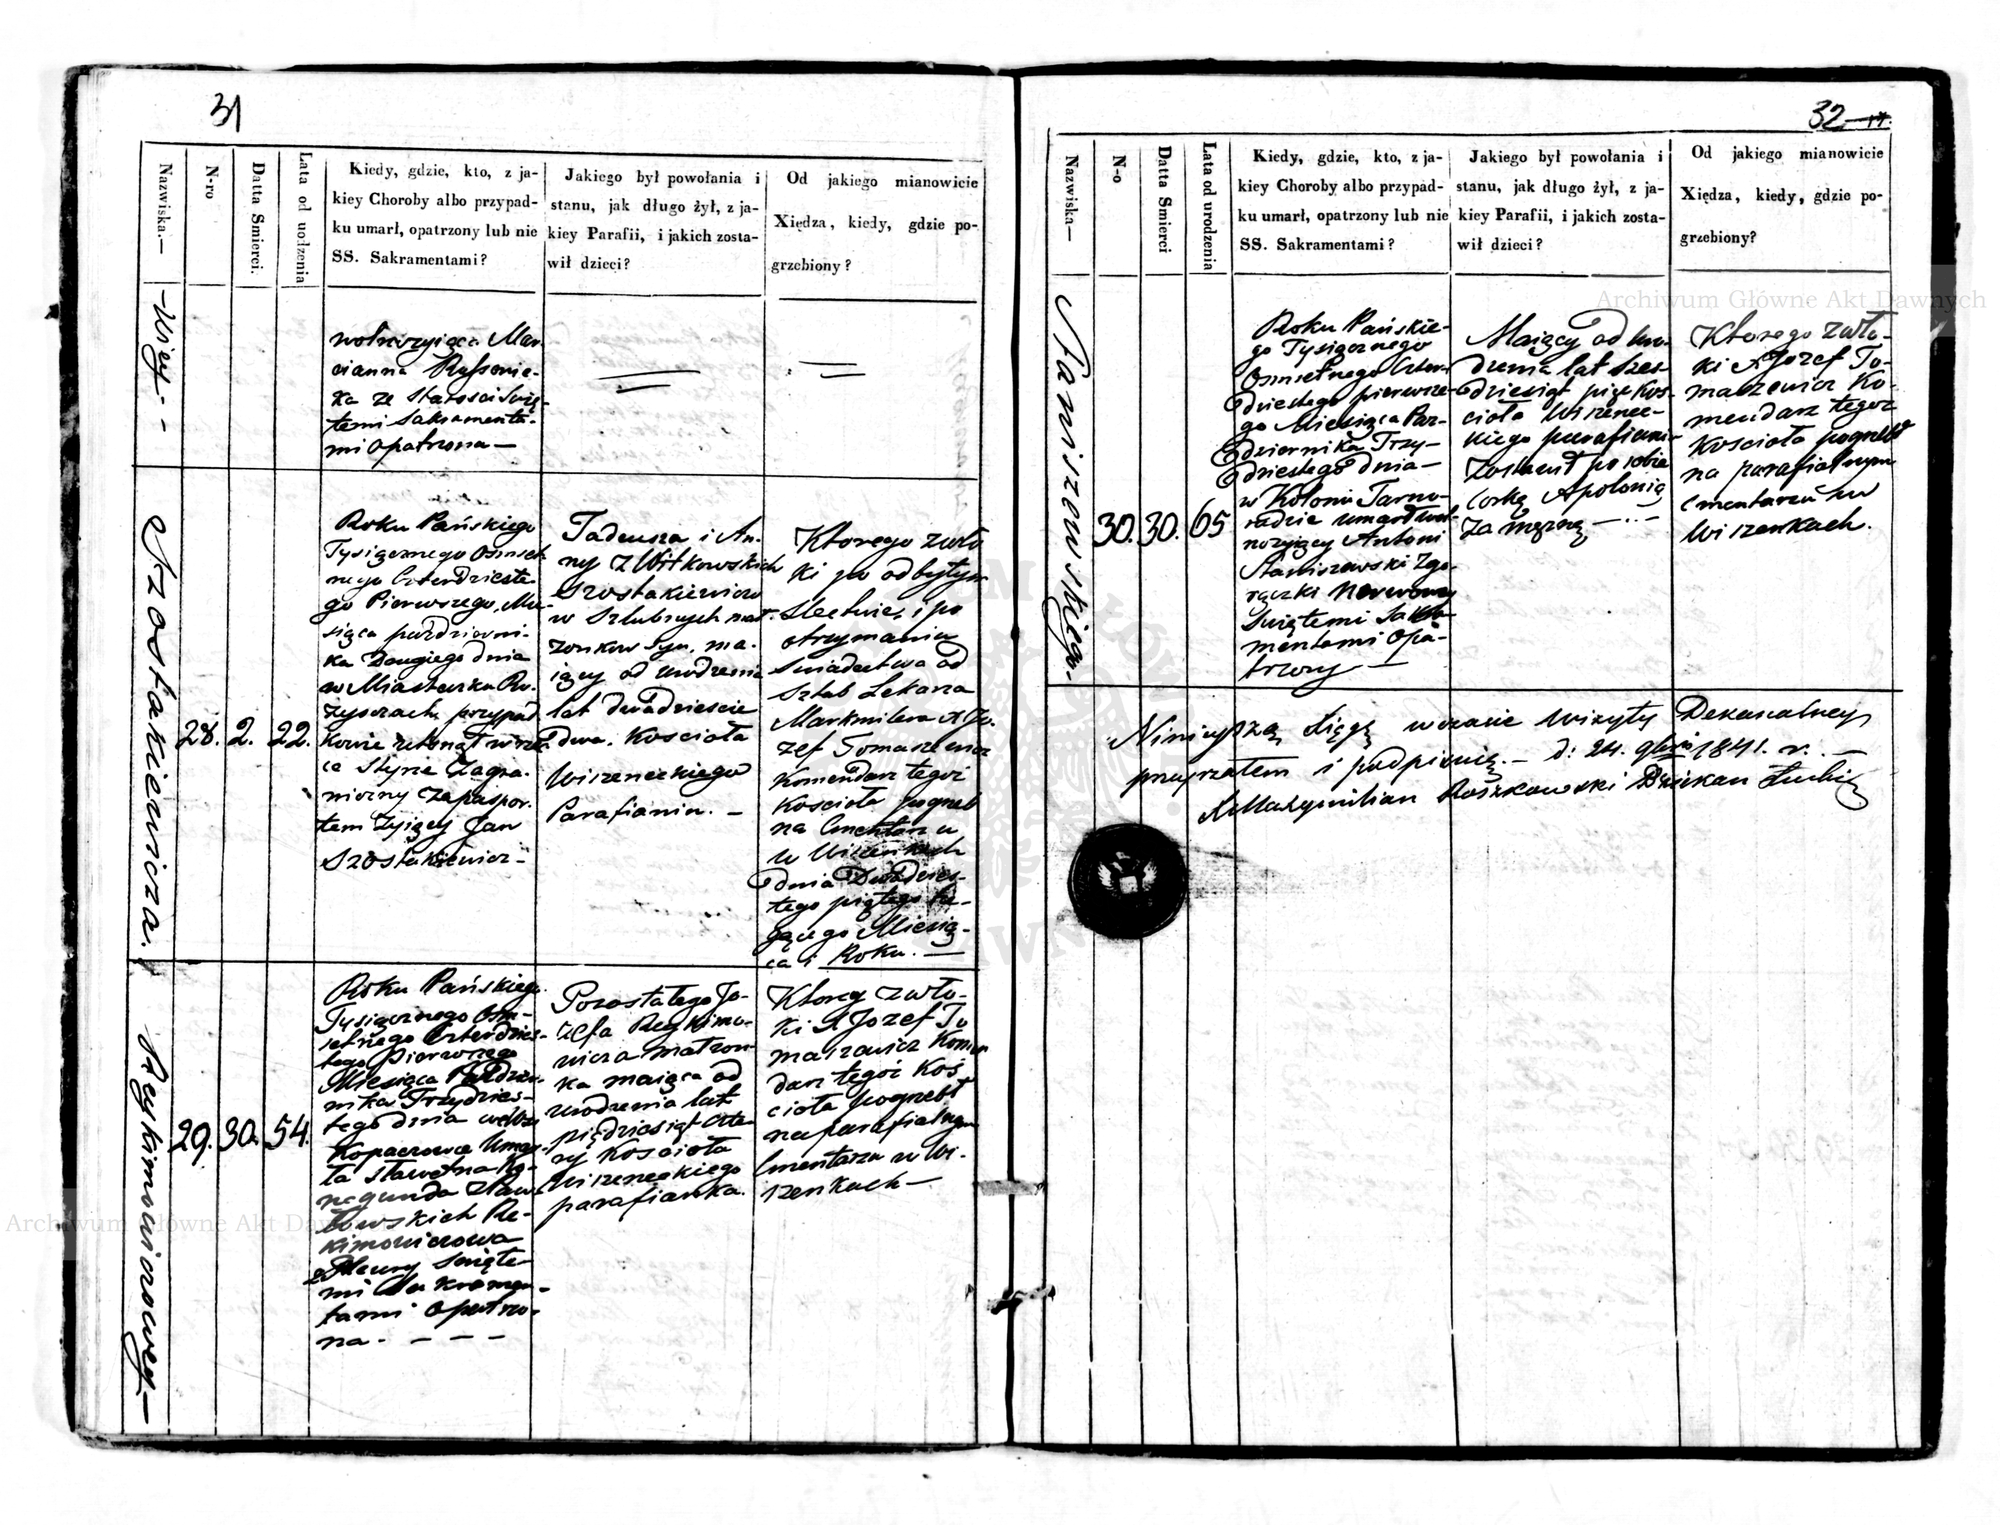 31
Nazwiska.—
N-ro
Datta Smierci.
Lata od uodzenia
Kiedy, gdzie, kto, z ja-
kiey Choroby albo przypad-
ku umarł, opatrzony lub nie
SS. Sakramentami?
Jakiego był powołania i
stanu, jak długo żył, z ja-
kiey Parafii, i jakich zosta-
wił dzieci?
Od jakiego mianowicie
Xiędza, kiedy, gdzie po-
grzebiony?
wolnożyiąca Mar-
cianna
ka ze Starosci Swię-
temi Sakramenta-
mi opatrzona —
Szostakiewicza.
28. 2. 22.
Roku Pańskiego
Tysiącznego Osmset-
nego Czterdzieste-
go Pierwszego, Mie-
siąca pazdzierni-
ka Drugiego dnia
w Miasteczku Ro-
zyszczach, przypad-
kowie utonął w rze-
ce Styrze Zagra-
niczny Zapaszpor-
tem żyjący Jan
Szostakiewicz —
Tadeusza i An-
ny z Witkowskich
Szostakiewiczow
w Szlubnych mał-
zonkow syn, ma-
iący od urodzenia
lat dwadziescie
dwa. Koscioła
Wiszeneckiego
Parafianin. —
Ktorego zwło
ki po odbytym
Sledtwie, i po
otrzymaniu
Swiadectwa od
Sztab Lekarza
Markmilera X Jo-
zef Tomaszewicz
Komendarz tegoż
Koscioła pogreb
na Cmentarzu
w Wiszenkach
dnia Dwadzies-
tego piątego te-
ca i Roku. —
Reykimowiczowey —
29. 30. 54.
Roku Pańskiego
Tysiącznego Osm-
setnego Czterdzies-
tego Pierwszego
Miesiąca Pazdzier-
nika Trzydzies-
tego dnia we Wsi
Kopaczowce Umar-
ła Sławetna Ku-
negunda z Paw-
łowskich Re-
kimowiczowa
Swięte-
mi Sakramen-
tami opatrzo-
na. — — —
Pozostałego Jo-
zefa Reykimo-
wicza małzon-
ka maiąca od
urodzenia lat
pięćdziesiąt czte-
ry Koscioła
Wiszeneckiego
parafianka.
Ktorey zwło-
ki X Jozef To
maszewicz Komen
darz tegoż Koś
cioła pogrebł
na parafialnym
Cmentarzu w Wi-
szenkach —
32
Nazwiska—
N-o
Datta Smierci
Lata od urodzenia
Kiedy, gdzie, kto, z ja-
kiey Choroby albo przypad-
ku umarł, opatrzony lub nie
SS. Sakramentami?
Jakiego był powołania i
stanu, jak długo żył, z ja-
kiey Parafii, i jakich zosta-
wił dzieci?
Od jakiego mianowicie
Xiędza, kiedy, gdzie po-
grzebiony?
Staniszewskiego.
30. 30. 65
Roku Pańskie-
go Tysiącznego
Osmsetnego Czter-
dziestego pierwsze-
go Miesiąca Paz-
dziernika Trzy-
dziestego dnia —
w Kolonii Tarno-
umarł wol-
nożyjący Antoni
Staniszewski z go-
rączki nerwowey
Swiętemi Sakra-
mentami opa-
trzony —
Maiący od uro-
dzenia lat szes-
dziesiąt pięć Kos-
cioła Wiszenec-
kiego parafianin
Zostawił po sobie
Corkę Apolonią
Zamęzną —
Ktorego zwło-
ki X Jozef To-
maszewicz Ko-
mendarz tegoz
Koscioła pogrebł
na parafialnym
Cmentarzu w
Wiszenkach.
Xięgę wczasie Wizyty Dekanalney
i podpisuię. — d: 24. 1841. r. —
X Maxymilian Roszkowski Dziekan Łucki
Archiwum Główne Akt Dawnych
Archiwum Główne Akt Dawnych